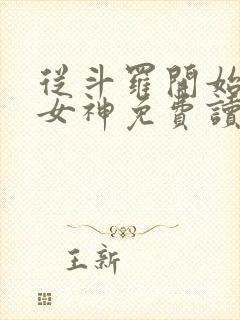 從斗羅開始
女神免費讀
王新